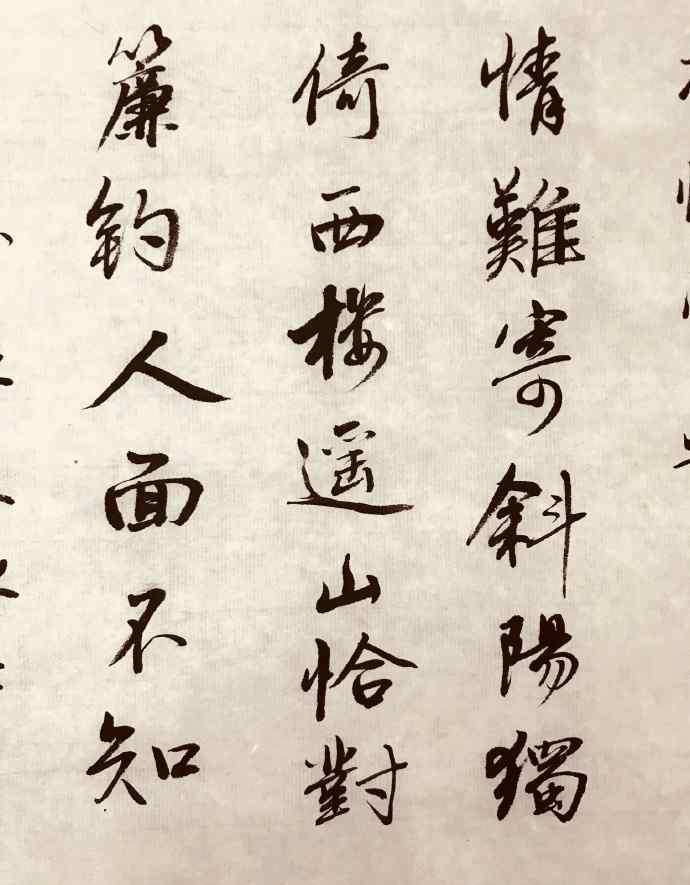 情難寄斜陽獨
倚西楼遥山恰對
簾鈎人面不知